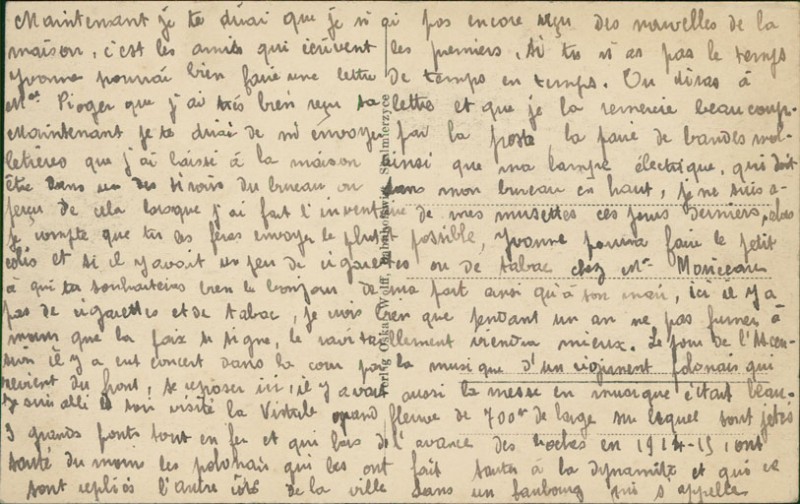 Maintenant je te dirai que je n'ai pas encore reçu des nouvelles de la
maison, c'est les amis qui écrivent les premiers, si tu n'as pas le temps
Yvonne pourrai bien faire une lettre de temps en temps. Tu diras à
Mme Pioger que j'ai très bien reçu sa lettre et que je la remercie beaucoup.
Maintenant je te dirai de m'envoyer par la poste, la paire de bandes mol-
letières que j'ai laissé à la maison ainsi que ma lampe électrique, qui doit
être dans un des tiroirs du bureau ou dans mon bureau en haut, je me suis a-
perçu de cela lorsque j'ai fait l'inventaire de mes musettes ces jours derniers, alors
je compte que tu les feras envoyer le plus tôt possible, Yvonne pourra faire le petit
colis et si il y avait un peu de cigarettes ou de tabac chez Mme Monceau
à qui tu souhaiteras bien le bonjour de ma part ainsi qu'à son mari, ici il y a
pas de cigarettes et de tabac, je crois bien que pendant un an ne pas fumer à
moins que la paix se signe, le ravitaillement viendra mieux. Le jour de l'Ascen-
sion il y a eut concert dans la cour par la musique d'un régiment polonais qui
revient du front, se reposer ici, il y avait aussi la messe en musique c'était beau.
Je suis allé ce soir visité la Vistule grand fleuve de 700m de large sur lequel sont jetés
3 grands ponts tout en fer et qui lors de l'avance des boches en 1914-15 ont
sauté du moins les polonais qui les ont fait sauter à la dynamite et qui se
sont repliés l'autre côté de la ville dans un faubourg qui s'appelle
Verlag Oskar Wolff, Skalmierzyce